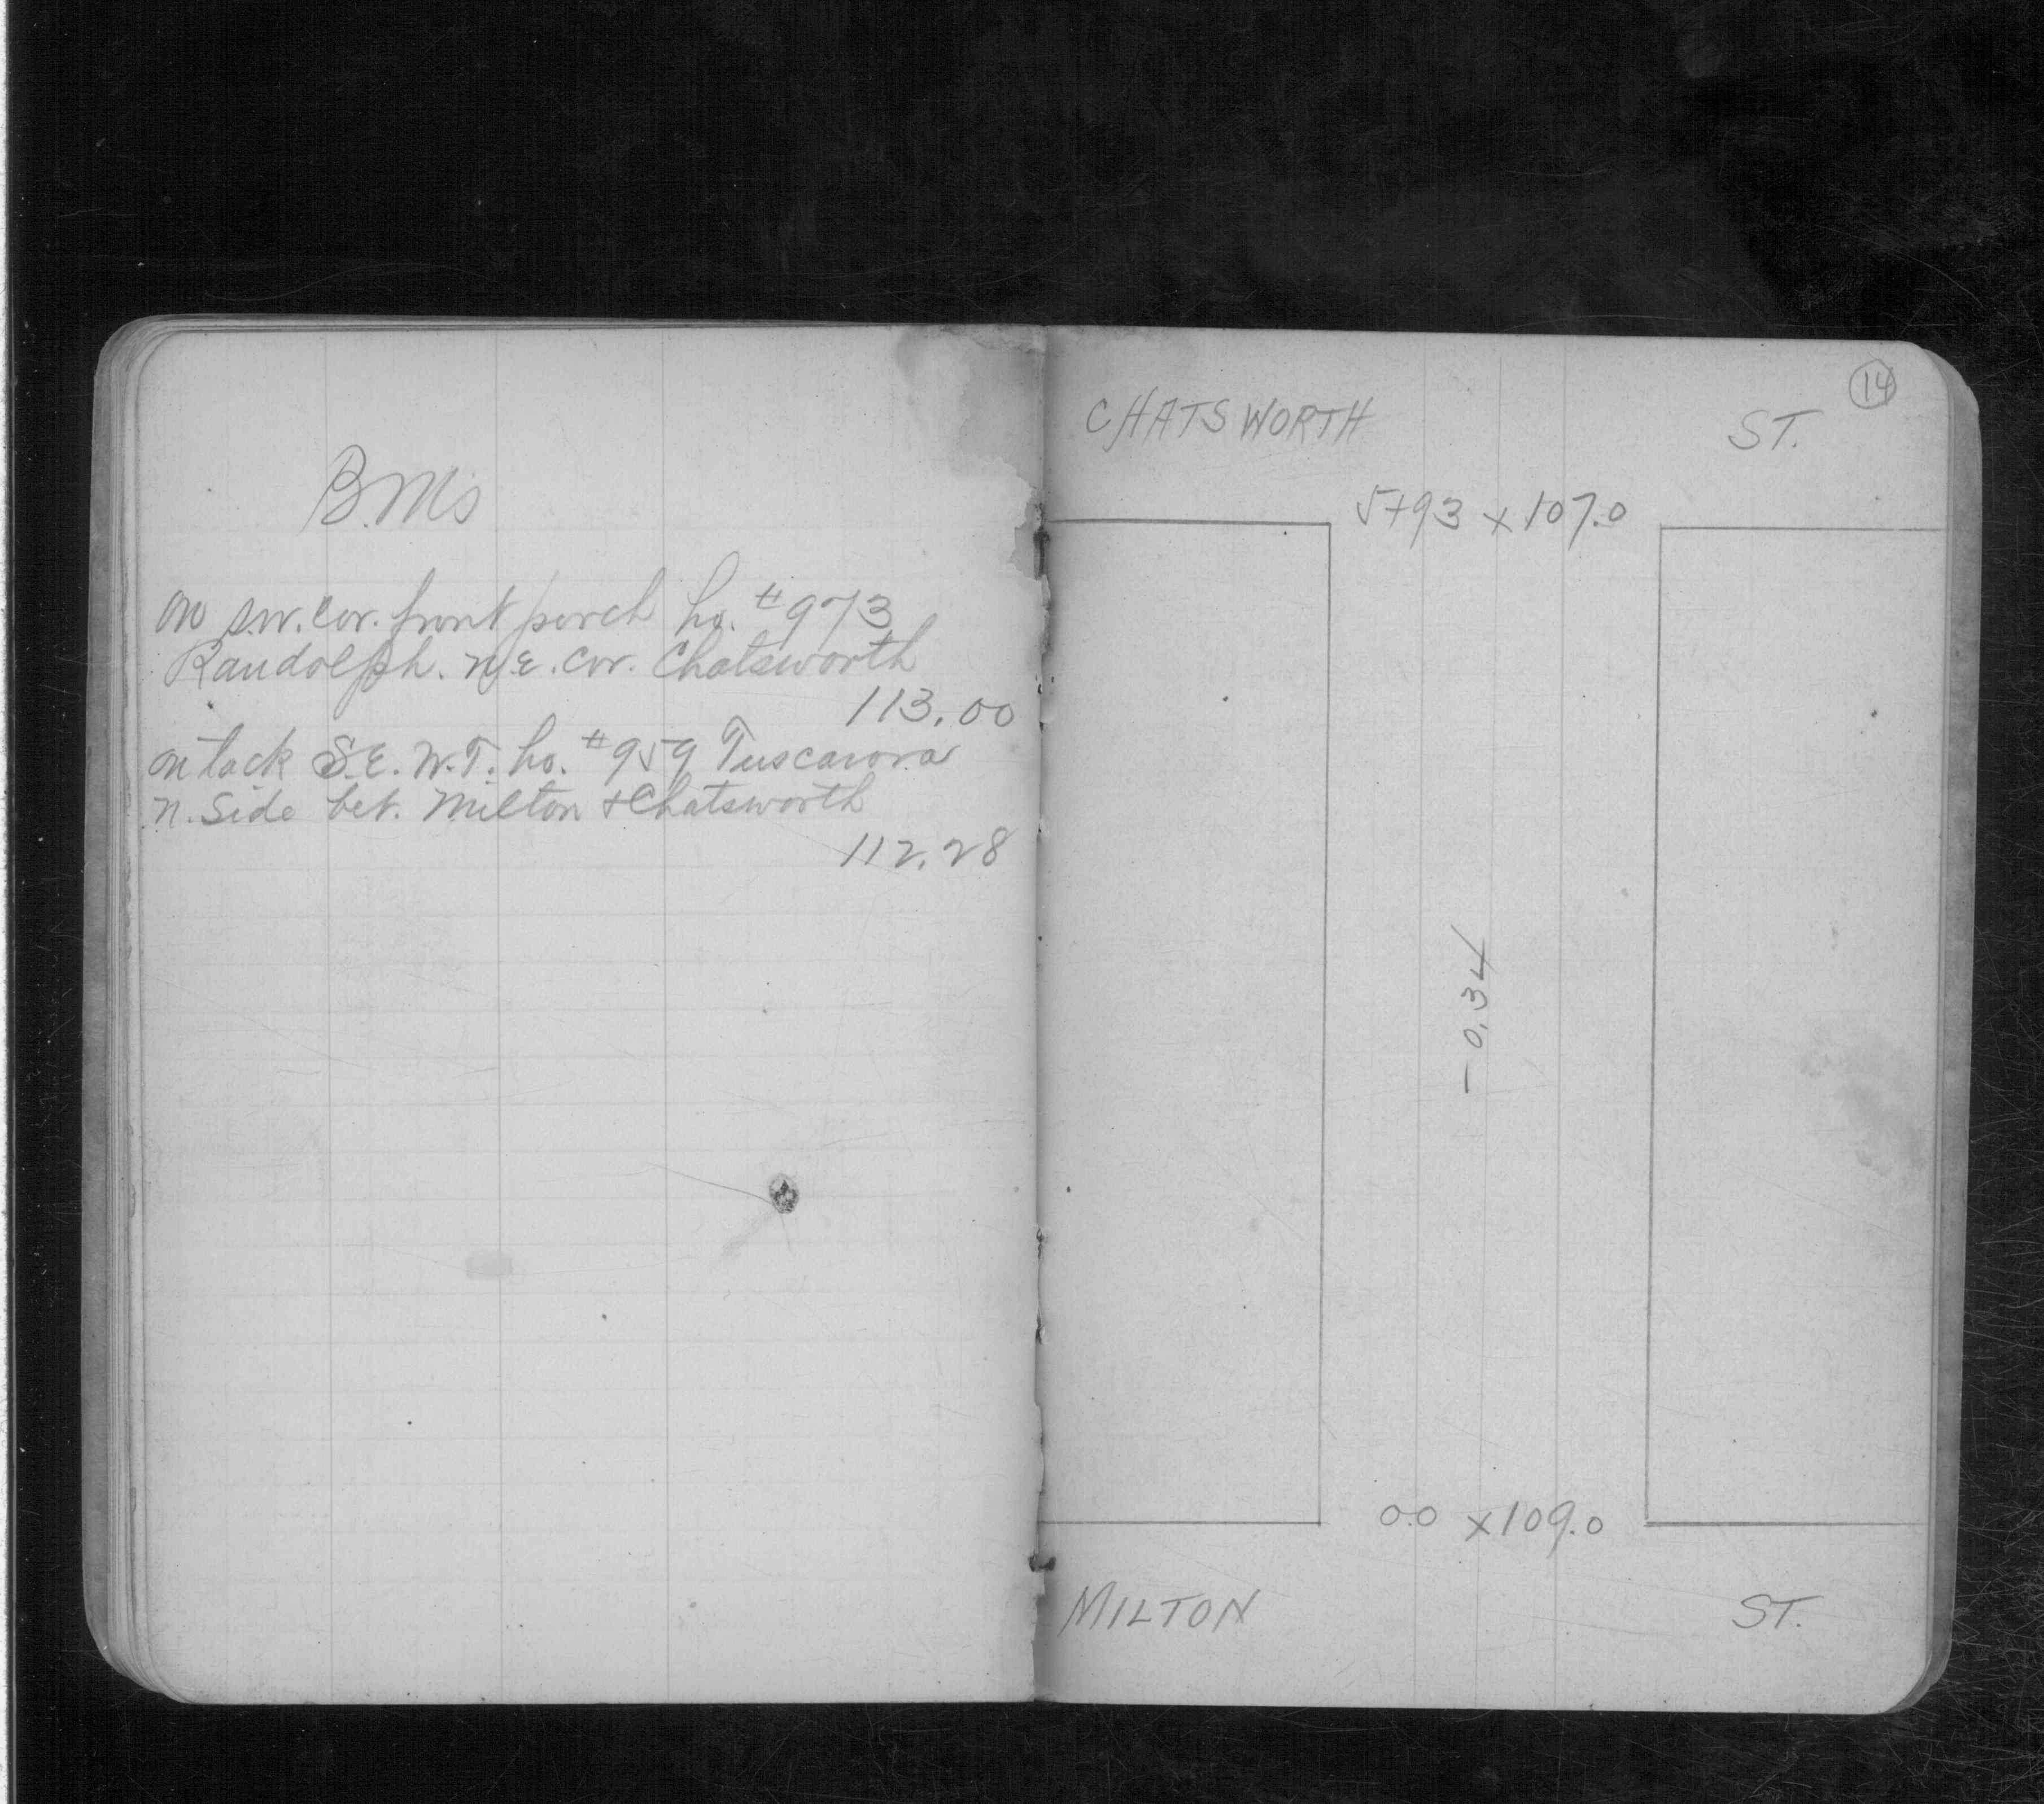 B.Ms
on s.w. cor. front porch ho. #973
Randolph. N.E. cor. Chatsworth
113.00
on tack S.E. W.T. ho. #959 Tuscarora
N. Side bet. Milton & Chatsworth
112.28
14
CHATSWORTH ST.
5+93 x 107.0
- 0.34
00 x 109.0
MILTON ST.